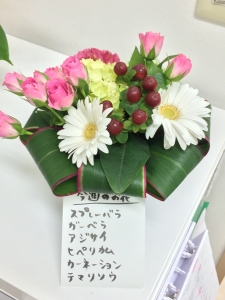 今週のお花
スプレーバラ
ガーベラ
アジサイ
ヒペリカム
カーネーション
テマリソウ